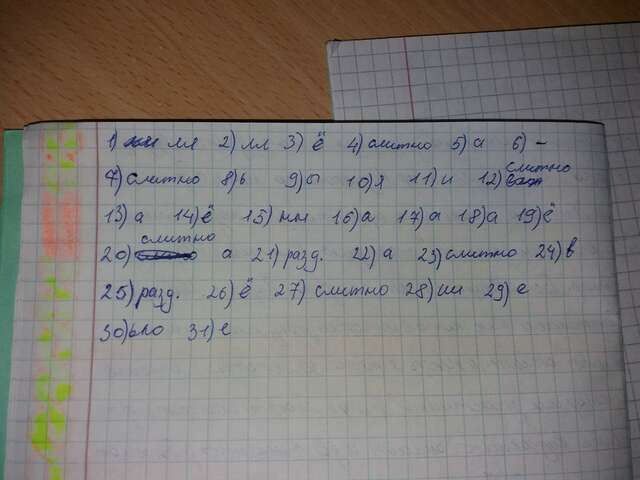 1) лл 2) лл 3) ё 4) слитно 5) а 6) -
7) слитно 8) ь 9) ы 10) я 11) и 12) слитно
13) а 14) ё 15) нн 16) а 17) а 18) а 19) ё
20) слитно а 21) разд. 22) а 23) слитно 24) в
25) разд. 26) ё 27) слитно 28) ии 29) е
30) ыо 31) е